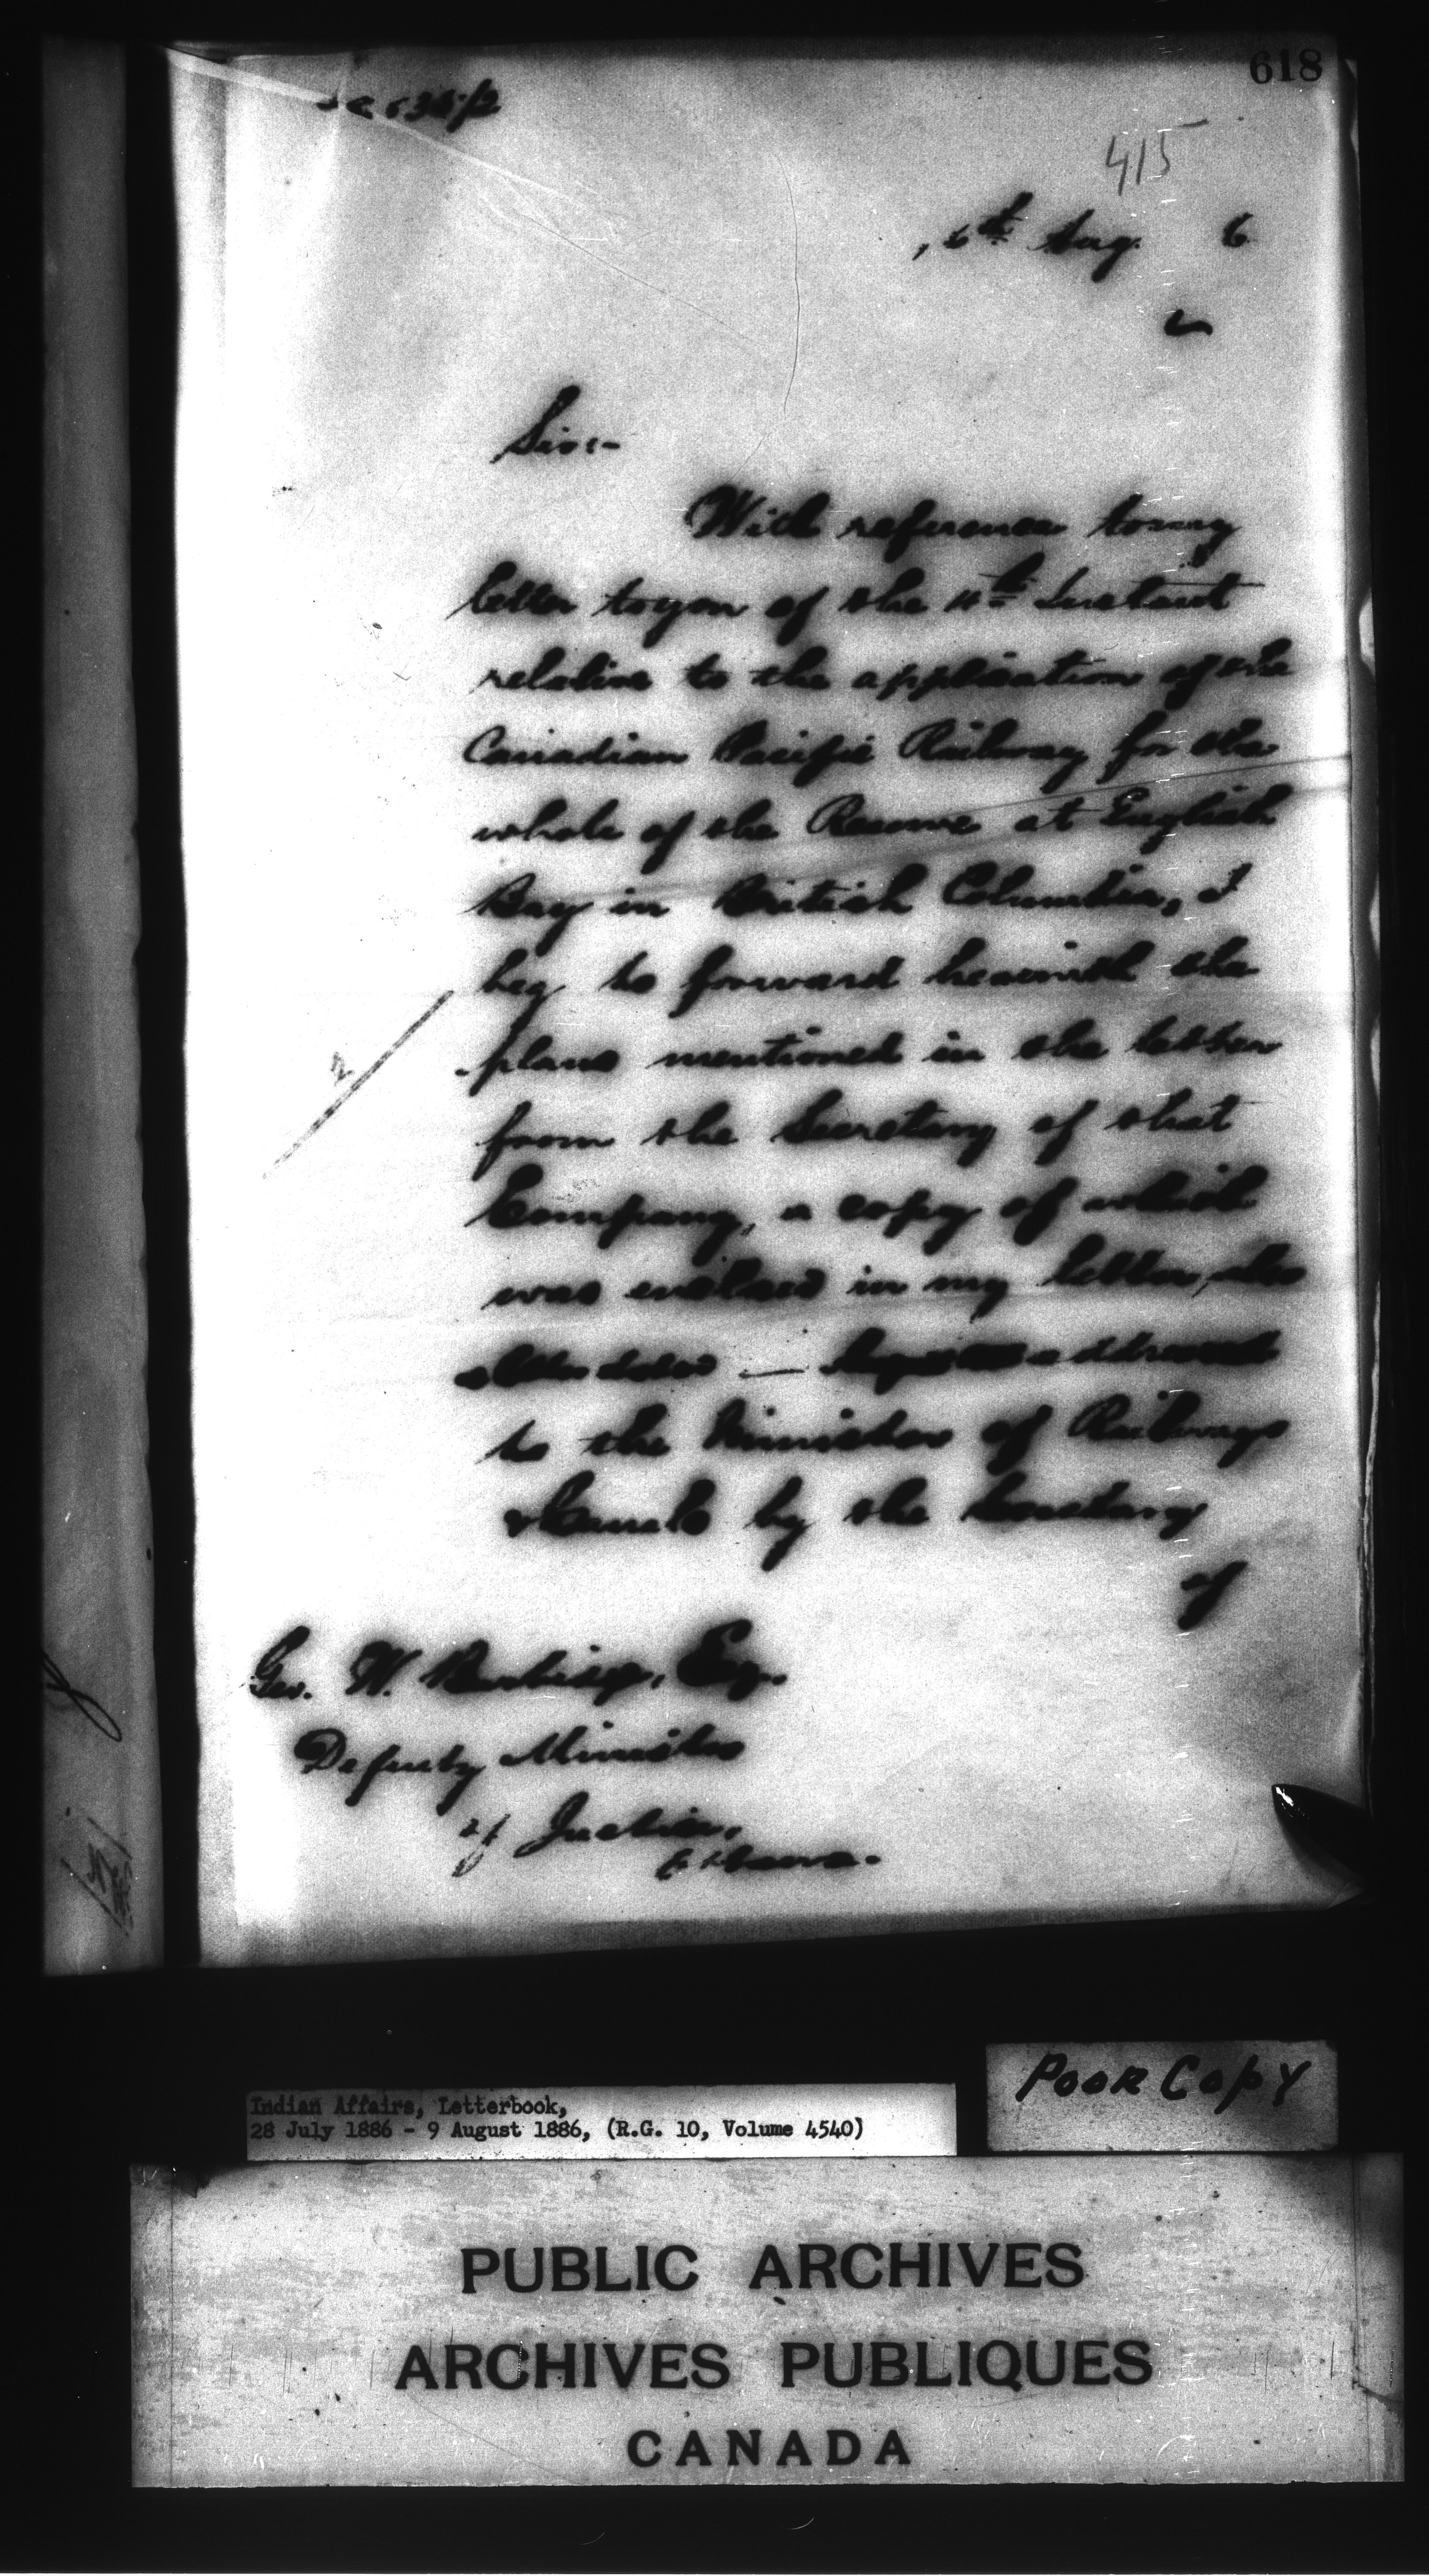 618
415
6th Aug. 6
Sir:-
With reference to my
letter to you of the 4th Instant
relative to the application of the
Canadian Pacific Railway for the
whole of the Reserve at English
Bay in British Columbia, I
beg to forward herewith the
plans mentioned in the letter
from the Secretary of that
Company, a copy of which
was enclosed in my letter, also
addressed
to the Minister of Railways
& Canals by the Secretary
of
Geo. W. Burbidge, Esq.
Deputy Minister
of Justice,
Ottawa.
2
Indian Affairs, Letterbook,
28 July 1886 - 9 August 1886, (R.G. 10, Volume 4540)
POOR COPY
PUBLIC ARCHIVES
ARCHIVES PUBLIQUES
CANADA